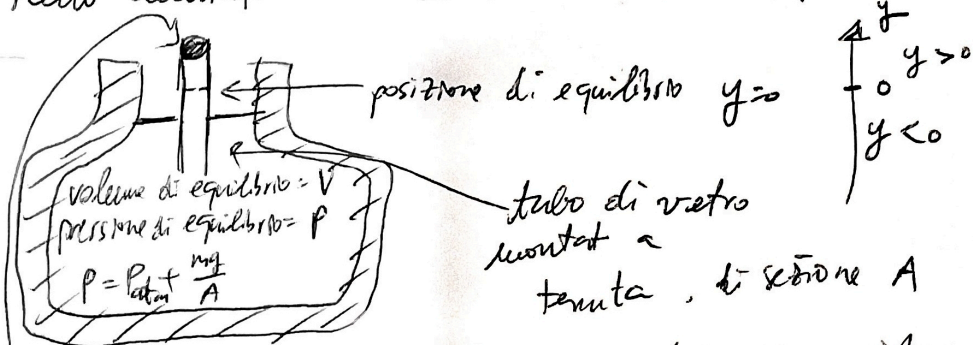 y
y>0
posizione di equilibrio y=0
0
y<0
volume di equilibrio = V
pressione di equilibrio = P
P = Patm + mg/A
tubo di vetro
montat a
tenuta, di sezione A